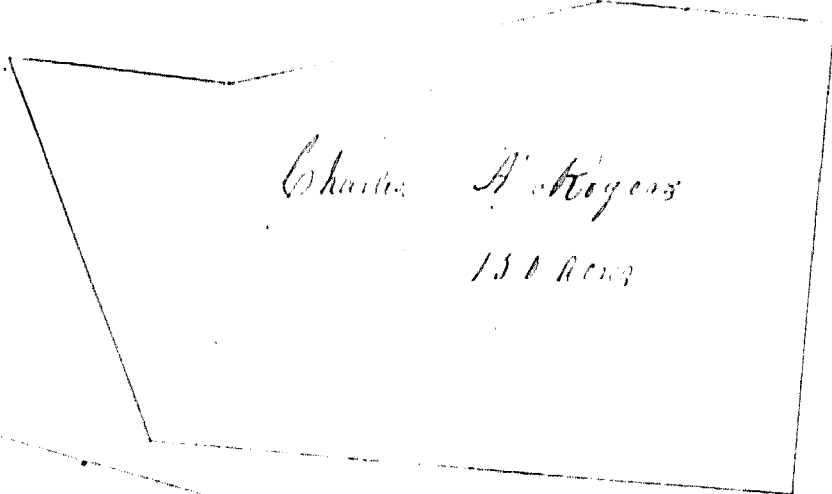 Charles A. Rogers
150 Acres